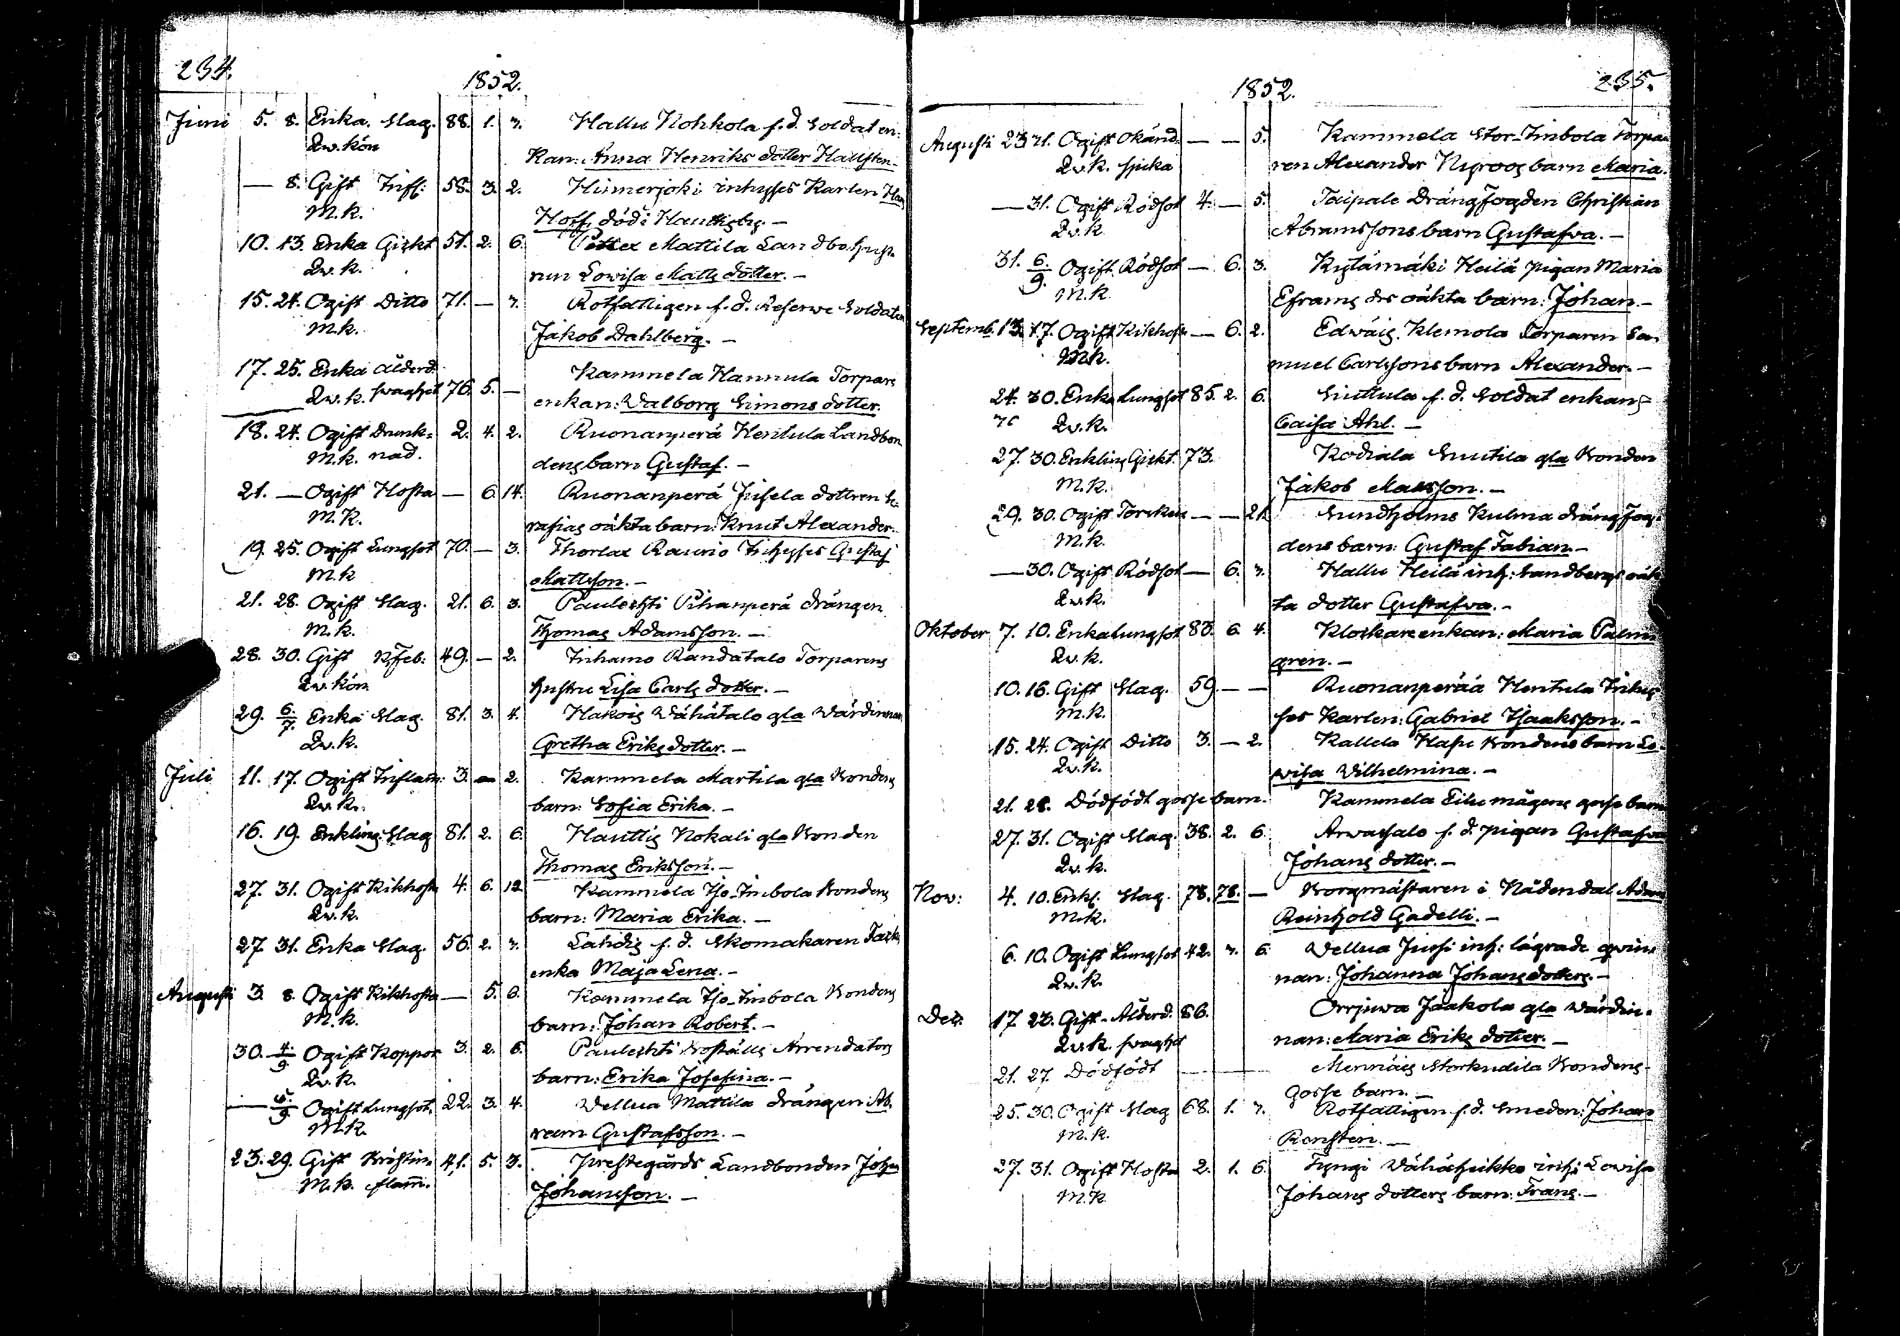 234.
1852.
Juni 5. 8. Enka. Slag. 88. 1. 7. Hallu Nohkola f.d. Soldat en-
Qv. kön kan: Anna Henriks dotter Hallsten.
— 8. Gift Infl: 58. 3. 2. Hinnerjoki inhyses Karlen
M.k. Hoff, död i Hauttis by. —
10. 13. Enka Gickt 51. 2. 6. Mattila Landbo hust-
Qv. k. run Lovisa Matts dotter. —
15. 24. Ogift Ditto 71. — 7. Rotfattigen f.d. Reserve Soldaten
M.k. Jakob Dahlberg. —
17. 25. Enka Ålderd.
Qv. k. svaghet 76. 5. — Kammela Hannula Torpare
enkan: Walborg Simons dotter.
18. 24. Ogift Drunk- 2. 4. 2. Ruonanperä Hentula Landbon
M.k. nad. dens barn Gustaf. —
21. — Ogift Hosta — 6. 14. Ruonanperä Jusela dottren Se-
M.K. rafias oäkta barn: Knut Alexander.
19. 25. Ogift Lungsot 70. — 3. Thorlax Raurio Inhyses Gustaf
M.k Mattsson. —
21. 28. Ogift Slag. 21. 6. 3. Pauleshti Pihanperä drängen
M.k. Thomas Adamsson. —
28. 30. Gift Nfeb: 49. — 2. Inhamo Randatalo Torparens
Qv. kön hustru Lisa Carls dotter. —
29. 6/7. Enka Slag. 81. 3. 4. Hakois Wähätalo gla Wärdinnan
Qv. k. Gretha Eriks dotter. —
Juli 11. 17. Ogift Inflam: 3. — 2. Kammela Martila gla Bondens
Qv. k. barn: Sofia Erika. —
16. 19. Enkling Slag 81. 2. 6. Hauttis Nokali gla Bonden
Thomas Eriksson. —
27. 31. Ogift Kikhosta 4. 6. 12. Kammela Iso-Imbola Bondens
Qv. k. barn: Maria Erika. —
27 31. Enka Slag. 56. 2. 7. Lahdis f.d. Skomakaren
enka Maja Lena. —
Augusti 3. 8. Ogift Kikhosta — 5. 3. Kammela Iso-Imbola Bondens
M.k. barn: Johan Robert. —
30. 4/9 Ogift Koppor 3. 2. 6. Pauleshti Boställs Arrendators
Qv. k. barn: Erika Josefina. —
— 5/9 Ogift Lungsot. 22. 3. 4. Vellua Mattila drängen Ab.
M.k. ram Gustafsson. —
23. 29. Gift Bröstin- 41. 5. 3. Prestegårds Landbonden Johan
M.k. flam. Johansson. —
1852. 235.
Augusti 23 21. Ogift Okänd — — 5. Kammela Stor-Imbola Torpa-
Qv. k. sjuka ren Alexander Nyroos barn Maria.
— 31. Ogift Rödsot 4. — 5. Taipale Drängfogden Christian
Qv. k. Abramssons barn Gustafva. —
31. 6/9. Ogift Rödsot — 6. 3. Kylämäki Heilä pigan Maria
M.k. Eframs drs oäkta barn: Johan. —
Septemb. 13. 17. Ogift Kikhosta — 6. 2. Edväis Klemola Torparen Sa-
M.k. muel Carlssons barn Alexander. —
24. 30. Enka Lungsot 85. 2. 6. Suttula f.d. Soldat enkan
Qv. k. Caisa Ahl. —
27. 30. Enkling Gickt. 73. Kodiala Suutila gla Bonden
M.k. Jakob Matsson. —
29. 30. Ogift Torsken — — 21 Sundholms Kulma drängfog-
M.k. dens barn: Gustaf Fabian. —
— 30. Ogift Rödsot — 6. 7. Hallu Heilä inh: Sandbergs oäk
Qv. k. ta dotter Gustafva. —
Oktober 7. 10. Enka Lungsot 83. 6. 4. Klockarenkan: Maria Palm-
Qv. k. gren. —
10. 16. Gift Slag. 59. — — Ruonanperää Hentula Inhy-
M.k. ses Karlen: Gabriel Isaksson. —
15. 24. Ogift Ditto 3. — 2. Kallela Hasu Bondens barn Lo-
Qv. k. visa Wilhelmina. —
21. 28. Dödfödt gosse barn. Kammela Eilu mågens gosse barn
27. 31. Ogift Slag. 38. 2. 6. Arvassalo f.d. pigan Gustafva
Qv. k. Johans dotter. —
Nov: 4. 10. Enkl. Slag. 78. 78. — Borgmästaren i Nådendal Adam
M.k. Reinhold Gadelli. —
6. 10. Ogift Lungsot 42. 7. 6. Vellua Jussi inh: lägrade qvin-
Qv. k. nan: Johanna Johans dotter. —
Dec. 17 23. Gift. Ålderd. 86. Orrjuva Jaakola gla Wärdin-
Qv. k. svaghet nan: Maria Eriks dotter. —
21. 27. Dödfödt Mennäis Storkudila Bondens
gosse barn. —
25. 30. Ogift Slag 68. 1. 7. Rotfattigen f.d. Smeden: Johan
M.k. Rensten. —
27. 31. Ogift Hosta 2. 1. 6. Tyngi Vähäheikka inh: Lovisa
M.k Johans dotters barn: Frans. —